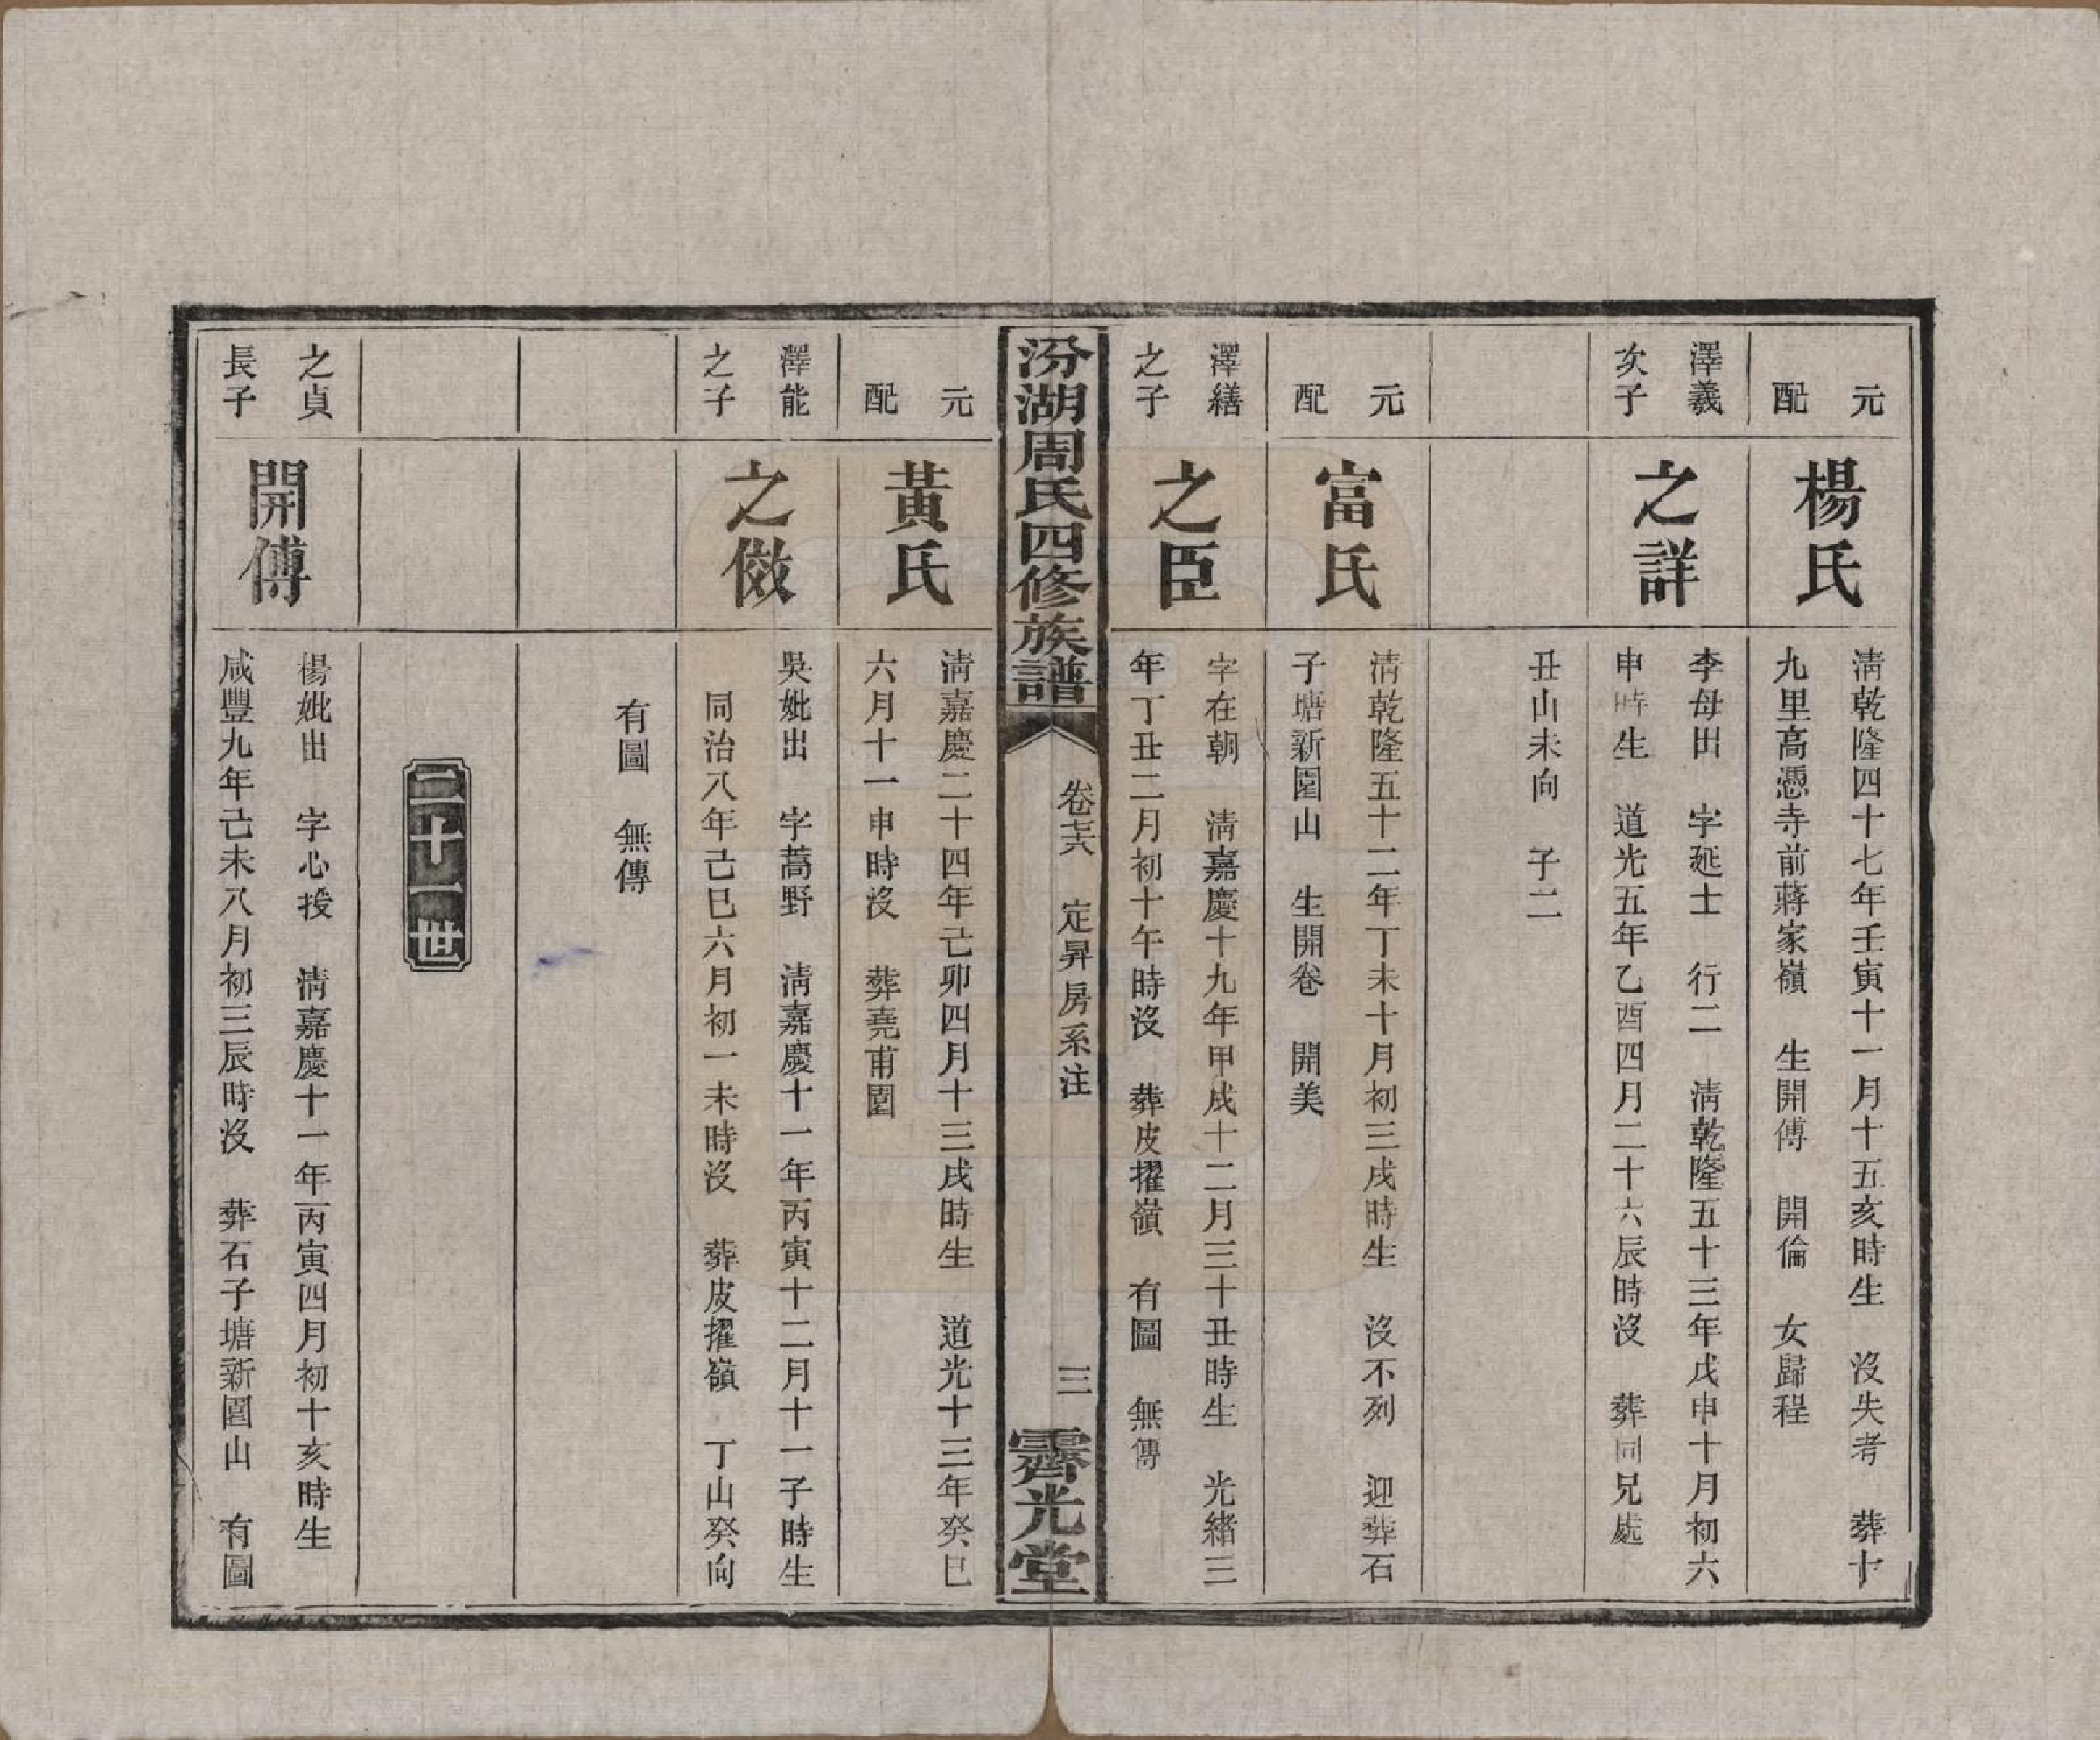 元配
楊氏
淸乾隆四十七年壬寅十一月十五亥時生　沒失考　葬十
九里高憑寺前蔣家嶺　生開傅　開倫　女歸程
澤義
次子
之詳
李母出　字延士　行二　淸乾隆五十三年戊申十月初六
申時生　道光五年乙酉四月二十六辰時沒　葬同兄處
丑山未向　子二
元配
富氏
淸乾隆五十二年丁未十月初三戌時生　沒不列　迎葬石
子塘新園山　生開卷　開美
澤繕
之子
之臣
字在朝　淸嘉慶十九年甲戌十二月三十丑時生　光緒三
年丁丑二月初十午時沒　葬皮擢嶺　有圖　無傳
汾湖周氏四修族譜
卷卅六　定昇房系注
三
霽光堂
元配
黃氏
淸嘉慶二十四年己卯四月十三戌時生　道光十三年癸巳
六月十一申時沒　葬堯甫園
澤能
之子
之儆
吳妣出　字蒿野　淸嘉慶十一年丙寅十二月十一子時生
同治八年己巳六月初一未時沒　葬皮擢嶺　丁山癸向
有圖　無傳
二十一世
之貞
長子
開傅
楊妣出　字心援　淸嘉慶十一年丙寅四月初十亥時生
咸豐九年己未八月初三辰時沒　葬石子塘新園山　有圖